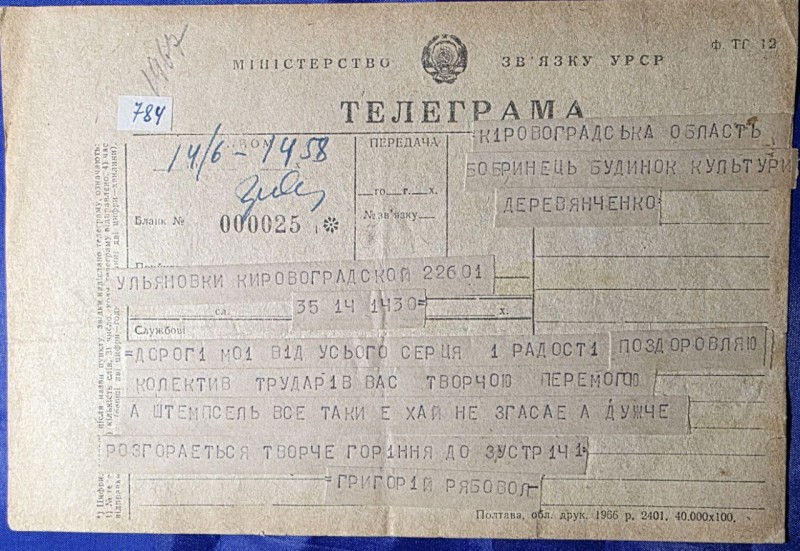 1967
МІНІСТЕРСТВО ЗВ'ЯЗКУ УРСР
Ф. ТГ 12
784
ТЕЛЕГРАМА
14/6 - 1458
ПЕРЕДАЧА
КІРОВОГРАДСЬКА ОБЛАСТЬ
БОБРИНЕЦЬ БУДИНОК КУЛЬТУРИ
ДЕРЕВЯНЧЕНКО
го г. х.
№ зв'язку
Бланк № 000025
УЛЬЯНОВКИ КИРОВОГРАДСКОЙ 22601
35 14 1430=
сл. х.
Службові
=ДОРОГІ МОІ ВІД УСЬОГО СЕРЦЯ І РАДОСТІ ПОЗДОРОВЛЯЮ
КОЛЕКТИВ ТРУДАРІВ ВАС ТВОРЧОЮ ПЕРЕМОГОЮ
А ШТЕМПСЕЛЬ ВСЕ ТАКИ Е ХАЙ НЕ ЗГАСАЕ А ДУЖЧЕ
РОЗГОРАЕТЬСЯ ТВОРЧЕ ГОРІННЯ ДО ЗУСТРІЧІ-
=ГРИГОРІЙ РЯБОВОЛ-
Полтава, обл. друк. 1966 р. 2401. 40.000х100.